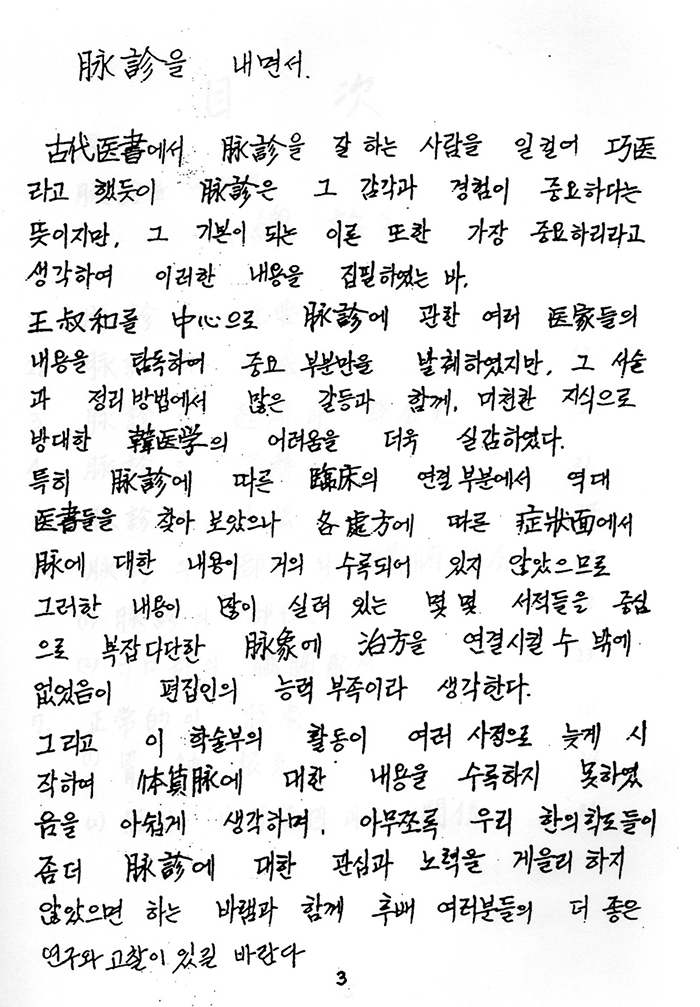 脉診을 내면서.
古代医書에서 脉診을 잘 하는 사람을 일컬어 巧医
라고 했듯이 脉診은 그 감각과 경험이 중요하다는
뜻이지만, 그 기본이 되는 이론 또한 가장 중요하리라고
생각하여 이러한 내용을 집필하였는 바,
王叔和를 中心으로 脉診에 관한 여러 医家들의
내용을 탐독하여 중요 부분만을 발췌하였지만, 그 서술
과 정리방법에서 많은 갈등과 함께, 미천한 지식으로
방대한 韓医学의 어려움을 더욱 실감하였다.
특히 脉診에 따른 臨床의 연결부분에서 역대
医書들을 찾아 보았으나 各處方에 따른 症狀面에서
脉에 대한 내용이 거의 수록되어 있지 않았으므로
그러한 내용이 많이 실려 있는 몇몇 서적들을 중심
으로 복잡다단한 脉象에 治方을 연결시킬 수 밖에
없었음이 편집인의 능력 부족이라 생각한다.
그리고 이 학술부의 활동이 여러 사정으로 늦게 시
작하여 体質脉에 대한 내용을 수록하지 못하였
음을 아쉽게 생각하며, 아무쪼록 우리 한의학도들이
좀더 脉診에 대한 관심과 노력을 게을리 하지
않았으면 하는 바램과 함께 후배 여러분들의 더 좋은
연구와 고찰이 있길 바란다
3